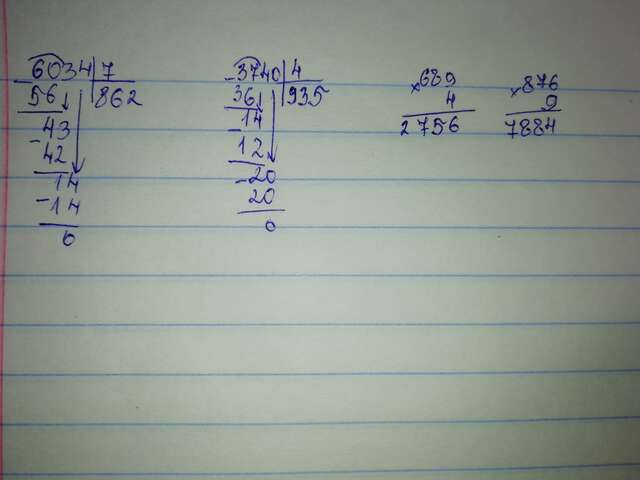 6034 7
56 862
- 43
42
14
- 14
0
- 3740 4
36 935
- 14
12
- 20
20
0
× 689
4
2756
× 876
9
7884